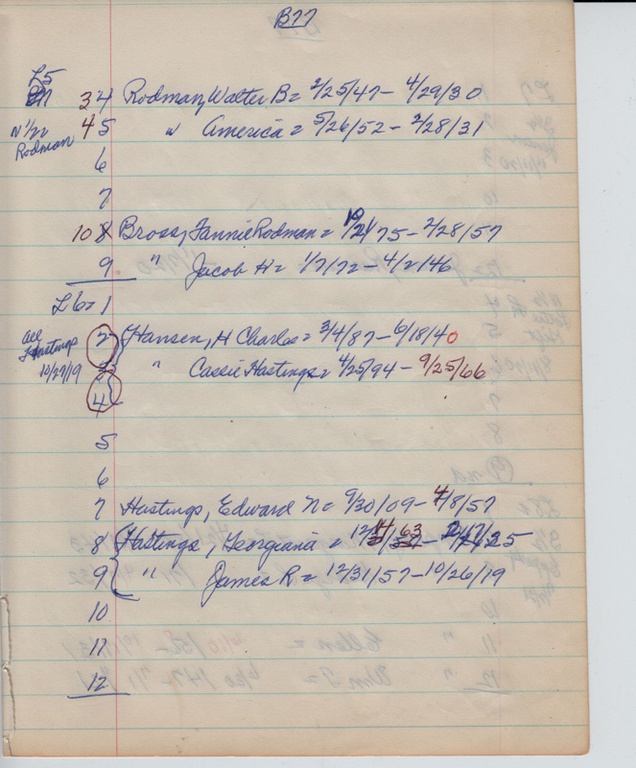 B77
L5
34 Rodman, Walter B = 2/25/47 - 4/29/30
N 1/22 45 " America = 5/26/52 - 2/28/31
Rodman
6
7
10 8 Bross, Fannie Rodman = 10/24/75 - 2/28/57
9 " Jacob H = 1/7/72 - 4/2/46
L6 = 1
All 2 Hansen, H Charles = 3/4/87 - 6/18/40
Hastings
10/27/19 3 " Cassie Hastings = 4/25/94 - 9/25/66
4
5
6
7 Hastings, Edward N = 9/30/09 - 4/8/57
8 Hastings, Georgiana = 12/14/63 - 2/17/25
9 " James R = 12/31/57 - 10/26/19
10
11
12